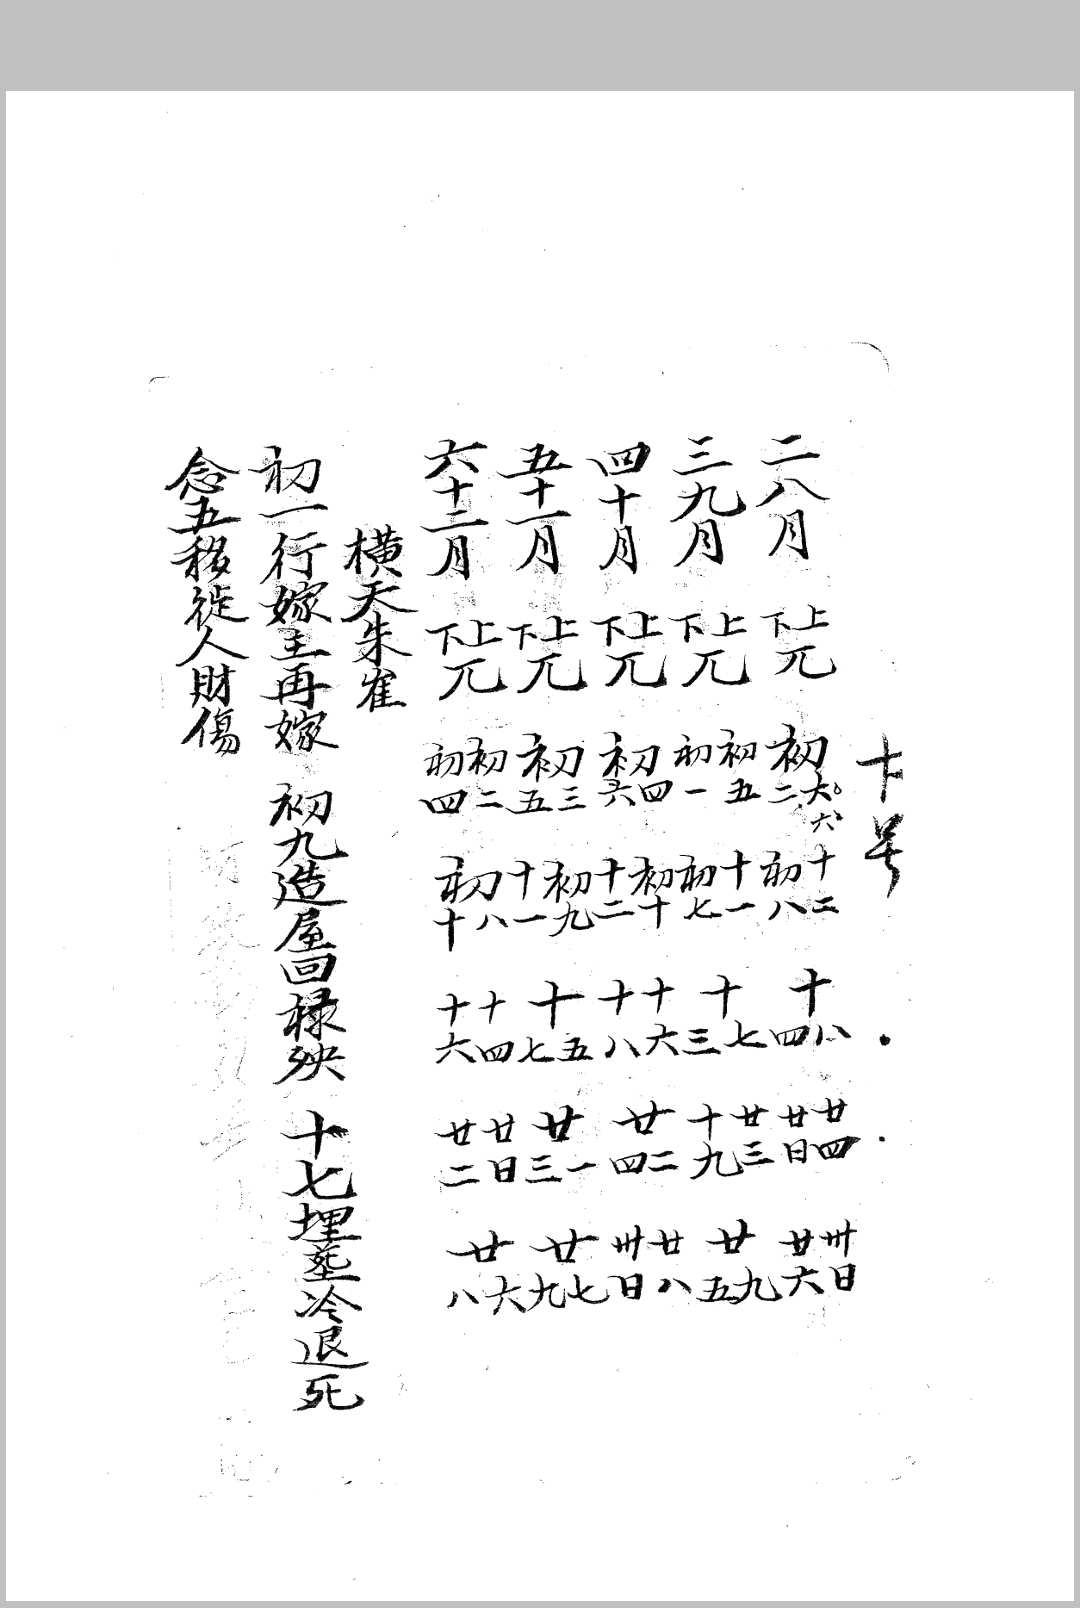 二八月 上下兀 初六二 十二 初八 十八四 廿四 廿日 卅日 廿六
三九月 上下兀 初五 初一 十一 初七 十七三 廿三 十九 廿九五
四十月 上下兀 初四六 初十 十二 十六 十八 廿二四 廿八 卅日
五十一月 上下兀 初三五 初九 十一 十五七 廿一三 廿七九
六十二月 上下兀 初二 初四 初八十 十四 十六 廿日 廿二 廿六八
橫天朱雀
初一行嫁主再嫁 初九造屋回祿殃 十七埋塟冷退死
念五移徙人財傷